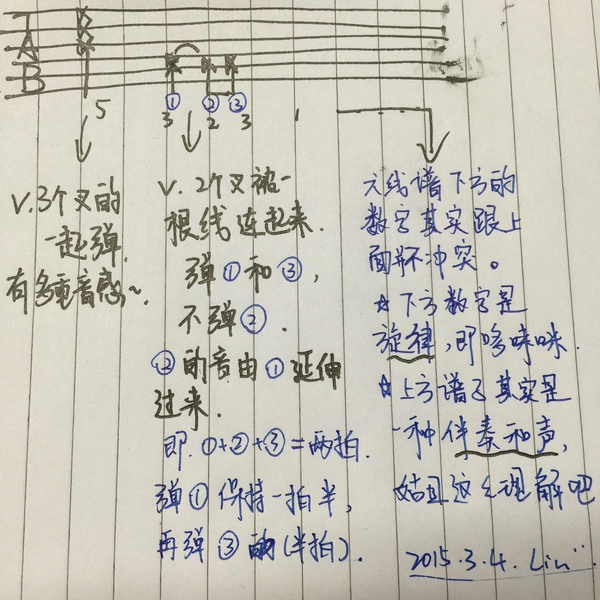 T
A
B
5
① ② ③
3 2 3
V. 3个叉的
一起弹,
有多重音感~.
V. 2个叉被一
根线连起来.
弹①和③,
不弹②.
②的音由①延伸
过来.
即.①+②+③=两拍.
弹①保持一拍半,
再弹③的(半拍).
六线谱下方的
数字其实跟上
面并不冲突。
☆下方数字是
旋律,即哆唻咪.
☆上方谱子其实是
一种伴奏和声,
姑且这么理解吧
2015.3.4. Lin